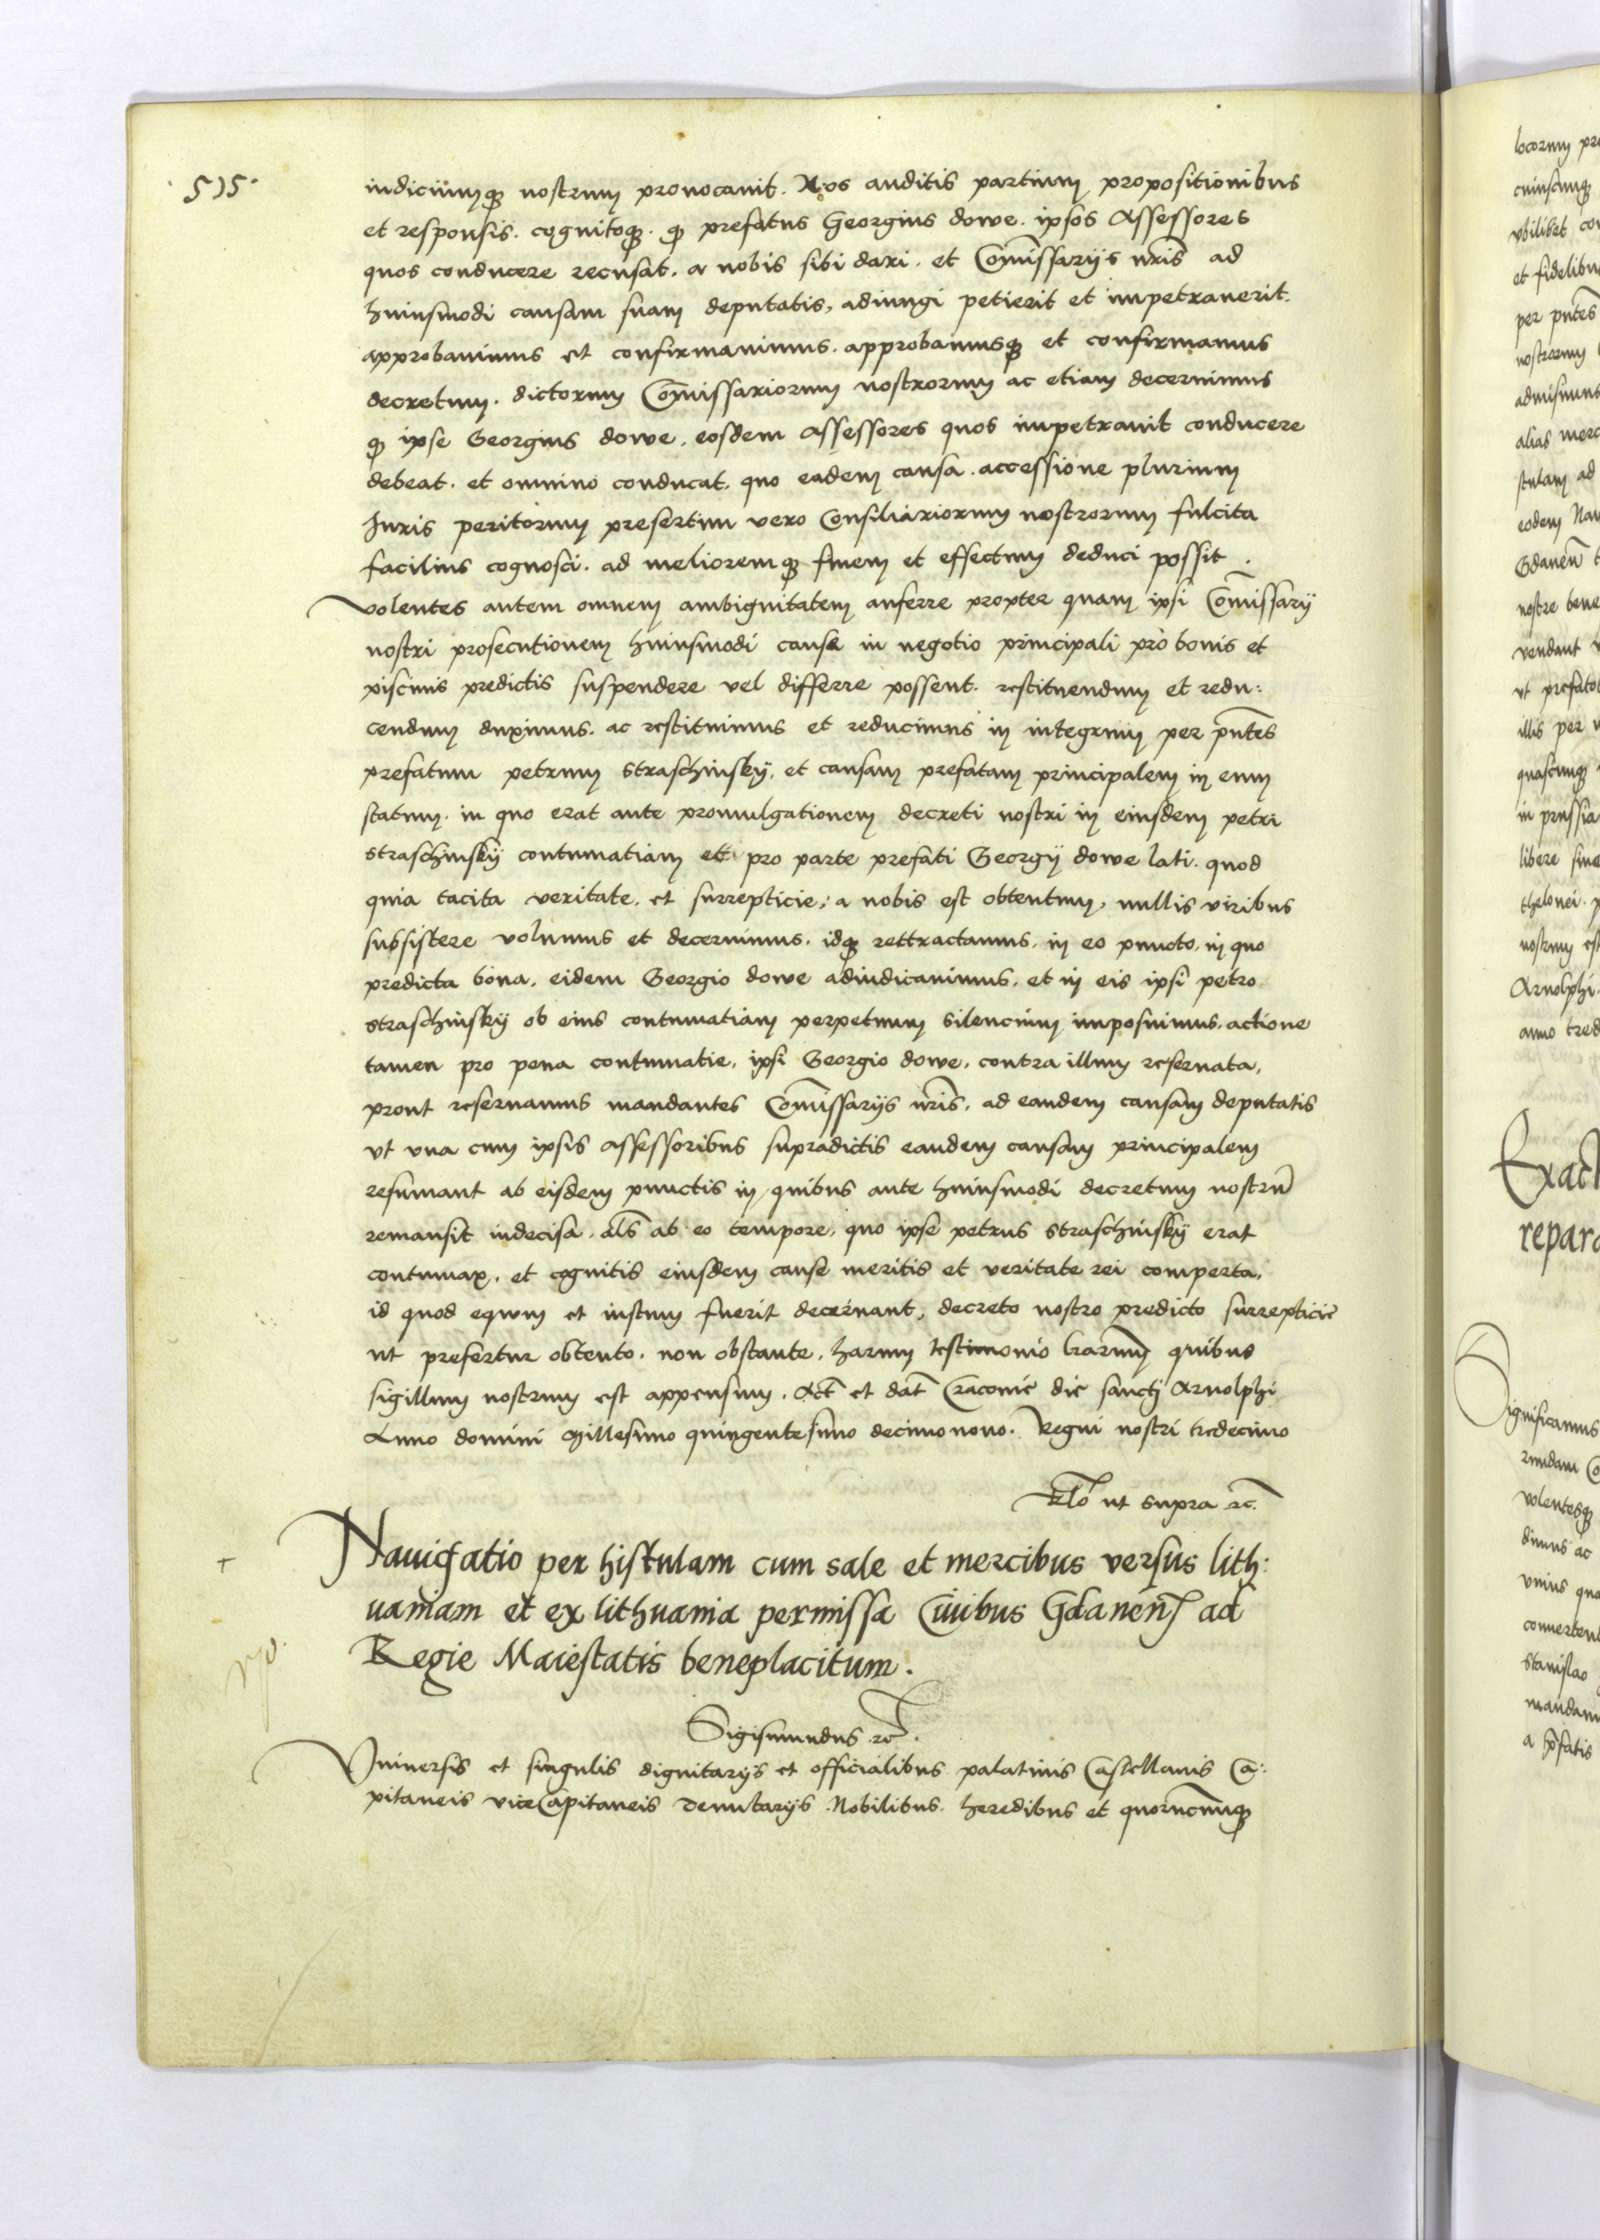 515
iudiciumq3 nostrum prouocauit. Nos auditis partium propositionibus
et responsis. cognitoq3. q3 prefatus Georgius dowe. ipsos Assessores
quos conducere recusat. a nobis sibi dari. et Com̄issarijs nr̄is ad
huiusmodi causam suam deputatis, adiungi petierit et impetrauerit.
approbauimus et confirmauimus. approbamusq3 et confirmamus
decretum. dictorum Com̄issariorum nostrorum ac etiam decernimus
q3 ipse Georgius dowe. eosdem Assessores quos impetrauit conducere
debeat. et omnino conducat. quo eadem causa. accessione plurium
Iuris peritorum presertim vero Consiliariorum nostrorum fulcita
facilius cognosci. ad melioremq3 finem et effectum deduci possit.
Volentes autem omnem ambiguitatem auferre propter quam ipsi Com̄issarij
nostri prosecutionem huiusmodi cause in negotio principali pro bonis et
piscinis predictis suspendere vel differre possent. restituendum et redu:
cendum duximus. ac restituimus et reducimus in integrum per pn̄tes
prefatum petrum straschinskÿ, et causam prefatam principalem in eum
statum. in quo erat ante promulgationem decreti nostri in eiusdem petri
straschinskÿ contumatiam et pro parte prefati Georgij dowe lati. quod
quia tacita veritate. et surrepticie, a nobis est obtentum, nullis viribus
subsistere volumus et decernimus. idq3 rettractamus. in eo puncto, in quo
predicta bona. eidem Georgio dowe adiudicauimus. et in eis ipsi petro
straschinskÿ ob eius contumatiam perpetuum silencium imposuimus. actione
tamen pro pena contumatie, ipsi Georgio dowe, contra illum reseruata,
prout reseruamus mandantes Com̄issarijs nr̄is, ad eandem causam deputatis
vt vna cum ipsis assessoribus supradictis eandem causam principalem
resumant ab eisdem punctis in quibus ante huiusmodi decretum nostru̅
remansit indecisa. al̄s ab eo tempore, quo ipse petrus straschinskÿ erat
contumax. et cognitis eiusdem cause meritis et veritate rei comperta,
id quod equum et iustum fuerit decernant, decreto nostro predicto surrepticie
ut prefertur obtento. non obstante. harum testimonio lr̄arum quibus
sigillum nostrum est appensum. Act̄ et dat̄ Cracouie die sancti Arnolphi
Anno domini Millesimo quingentesimo decimonono. Regni nostri tredecimo
Rl̄o ut supra rc̄.
+
Nauigatio per histulam cum sale et mercibus versus lith:
uaniam et ex lithuania permissa Ciuibus Gdanen̄ ad
Regie Maiestatis beneplacitum.
Sigismundus rc̄.
Vniuersis et singulis dignitarijs et officialibus palatinis Castellanis Ca:
pitaneis viceCapitaneis Tenutarijs Nobilibus. heredibus et quorucumq3
locorum
cuiuscumq3
vbilibet
et fidelibus
per pn̄tes
nostrorum
admisimus
alias
stulam ad
eodem
Gdanen̄
nostre
vendant
ut prefatos
illis per
quascumq3
in prussia
libere sine
thelonei.
nostrum
Arnolphi
anno
Exact
repara
Significamus
volentesq3
dimus ac
vnius
Stanislao
a p̄fatis